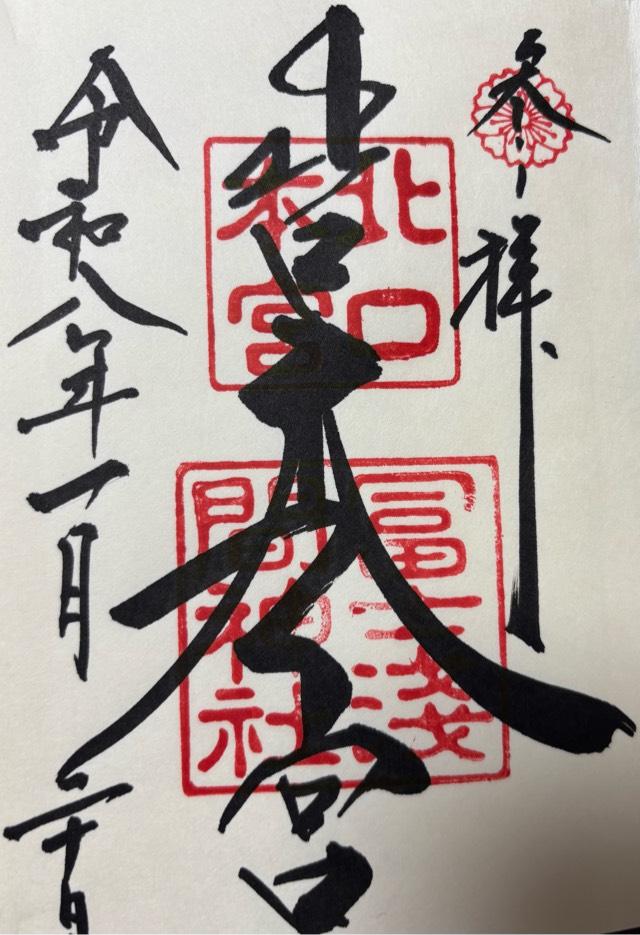 奉拝
北口本宮
北口
本宮
冨士浅
間神社
令和八年一月二十日